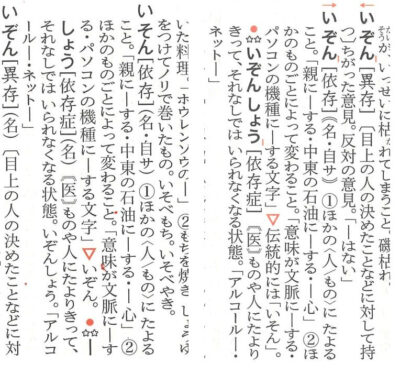 そうが、いっせいに枯れてしまうこと。磯枯れ
いぞん[異存]〔目上の人の決めたことなどに対して持
つ〕ちがった意見。反対の意見。「―はない」
いぞん[依存]（名・自サ）①ほかの〈人／もの〉にたよる
こと。「親に―する・中東の石油に―する・―心」②ほ
かのものごとによって変わること。「意味が文脈に―する・
パソコンの機種に―する文字」▽伝統的には「いそん」。
●☆☆いぞんしょう[依存症]〘医〙ものや人にたより
きって、それなしではいられなくなる状態。「アルコール―・
ネット―」
いた料理。「ホウレンソウの―」②もちを焼き
をつけてノリで巻いたもの。いそべもち。いそべやき。
いそん[依存]（名・自サ）①ほかの〈人／もの〉にたよる
こと。「親に―する・中東の石油に―する・―心」②
ほかのものごとによって変わること。「意味が文脈に―す
る・パソコンの機種に―する文字」▽いぞん。●☆☆―
しょう[依存症]（名）〘医〙ものや人にたよりきって、
それなしではいられなくなる状態。いぞんしょう。「アルコ
ール―・ネット―」
いぞん[異存]（名）〔目上の人の決めたことなどに対